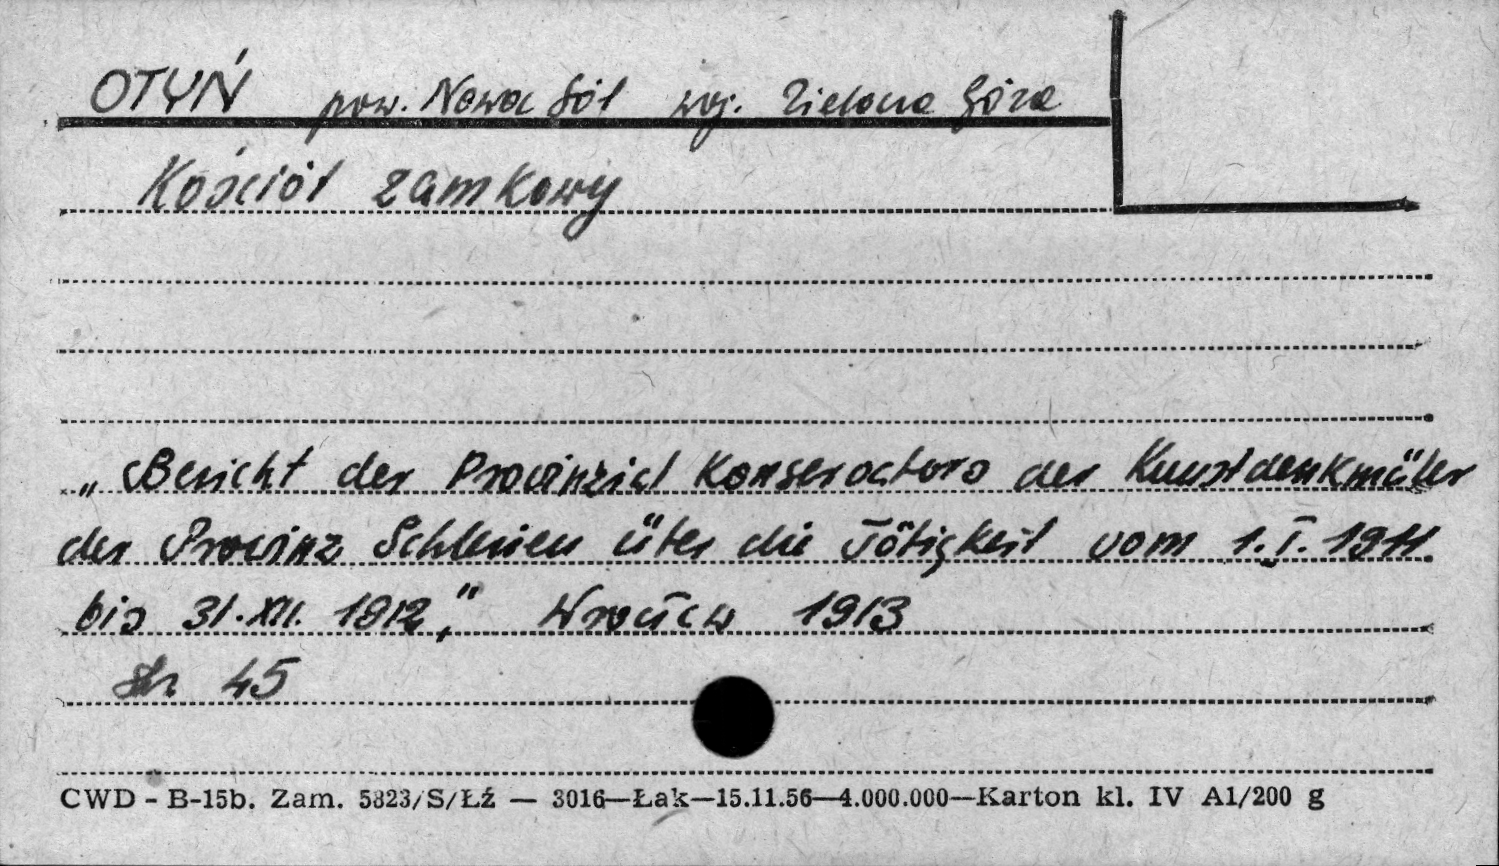 OTYŃ pow. Nowa Sól woj. Zielona Góra
Kościół zamkowy
„Bericht des Provinzial Konservators der Kunstdenkmäler
der Provinz Schlesien über die Tätigkeit vom 1.I.1911
bis 31.XII. 1912," Wrocław 1913
str 45
CWD - B-15b. Zam. 5823/S/Łź — 3016—Łak—15.11.56—4.000.000—Karton kl. IV A1/200 g